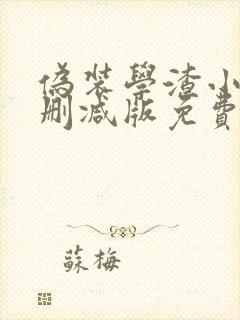 偽裝學渣小
刪減版免費
蘇梅